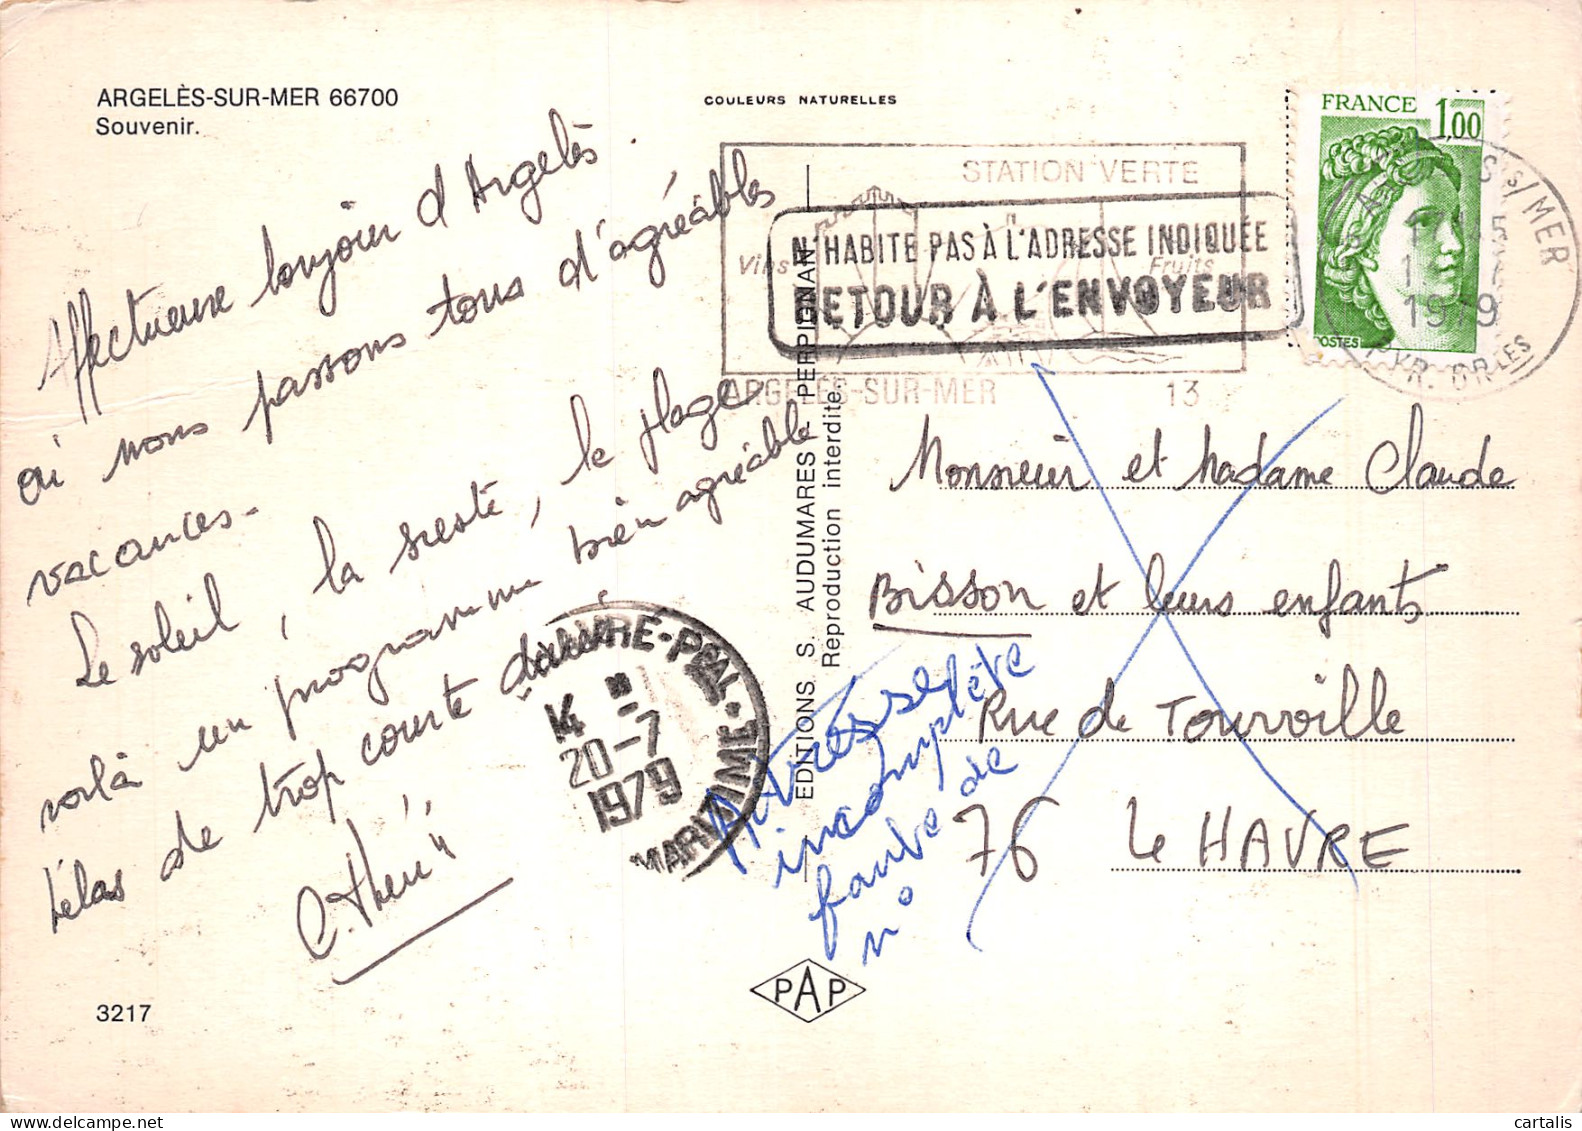 ARGELÈS-SUR-MER 66700
Souvenir.
COULEURS NATURELLES
FRANCE 1,00
POSTES
STATION VERTE
Vins
Fruits
ARGELÈS-SUR-MER 13
N'HABITE PAS À L'ADRESSE INDIQUÉE
RETOUR À L'ENVOYEUR
S/MER
1979
PYR. ORLES
Affectueux bonjour d'Argelès.
où nous passons tous d'agréables
vacances.
Le soleil, la sieste, la plage
voilà un programme bien agréable
hélas de trop courte durée
C. Théri
HAVRE-PPAL
14
20-7
1979
MARITIME
EDITIONS S. AUDUMARES - PERPIGNAN
Reproduction interdite.
Monsieur et Madame Claude
Bisson et leurs enfants
Rue de Tourville
76 Le HAVRE
Adresse
incomplète
faute de
n°
3217
PAP
cartalis